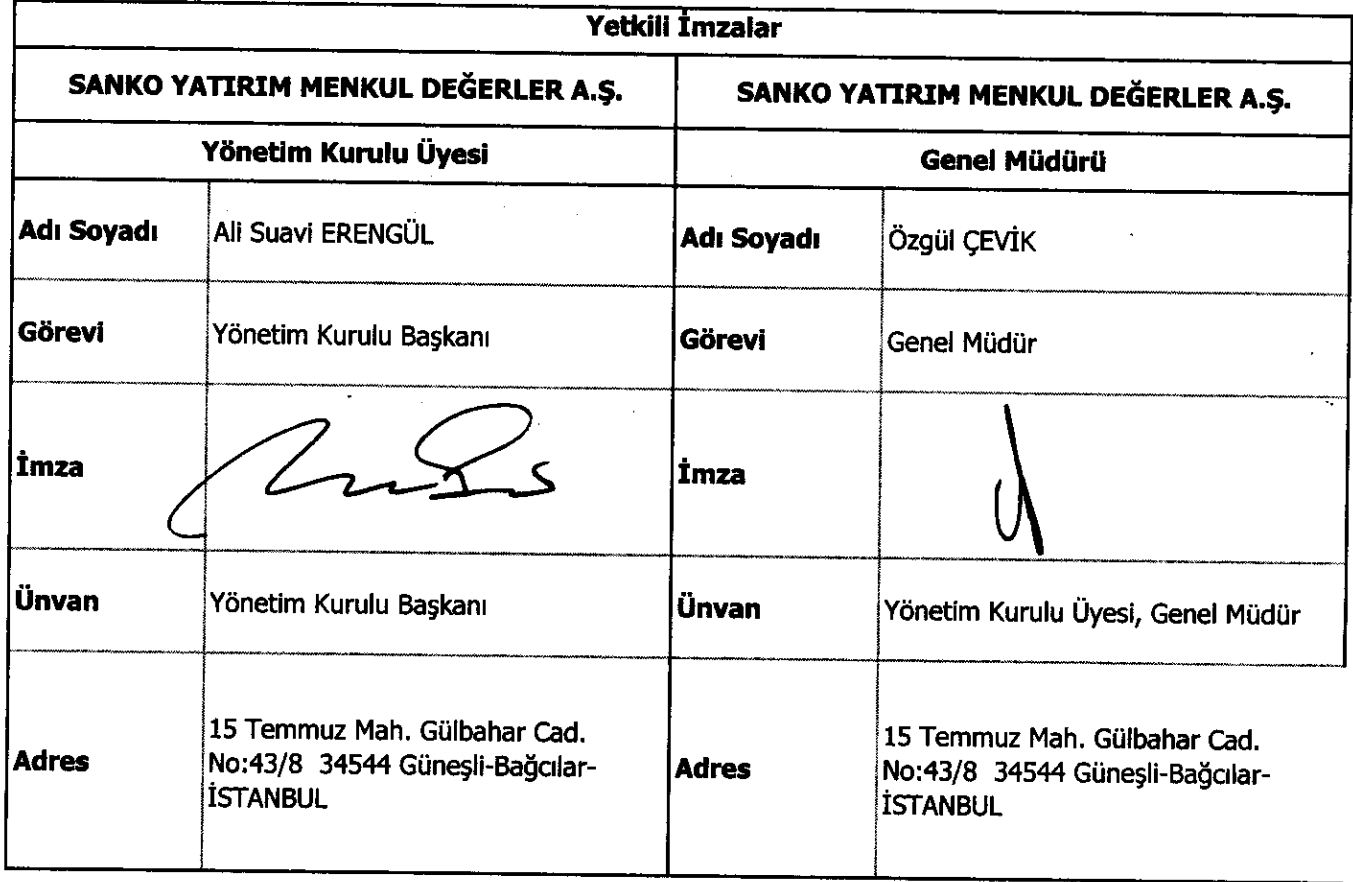 Yetkili İmzalar
SANKO YATIRIM MENKUL DEĞERLER A.Ş. SANKO YATIRIM MENKUL DEĞERLER A.Ş.
Yönetim Kurulu Üyesi Genel Müdürü
Adı Soyadı Ali Suavi ERENGÜL Adı Soyadı Özgül ÇEVİK
Görevi Yönetim Kurulu Başkanı Görevi Genel Müdür
İmza İmza
Ünvan Yönetim Kurulu Başkanı Ünvan Yönetim Kurulu Üyesi, Genel Müdür
Adres
15 Temmuz Mah. Gülbahar Cad.
No:43/8 34544 Güneşli-Bağcılar-
İSTANBUL
Adres
15 Temmuz Mah. Gülbahar Cad.
No:43/8 34544 Güneşli-Bağcılar-
İSTANBUL